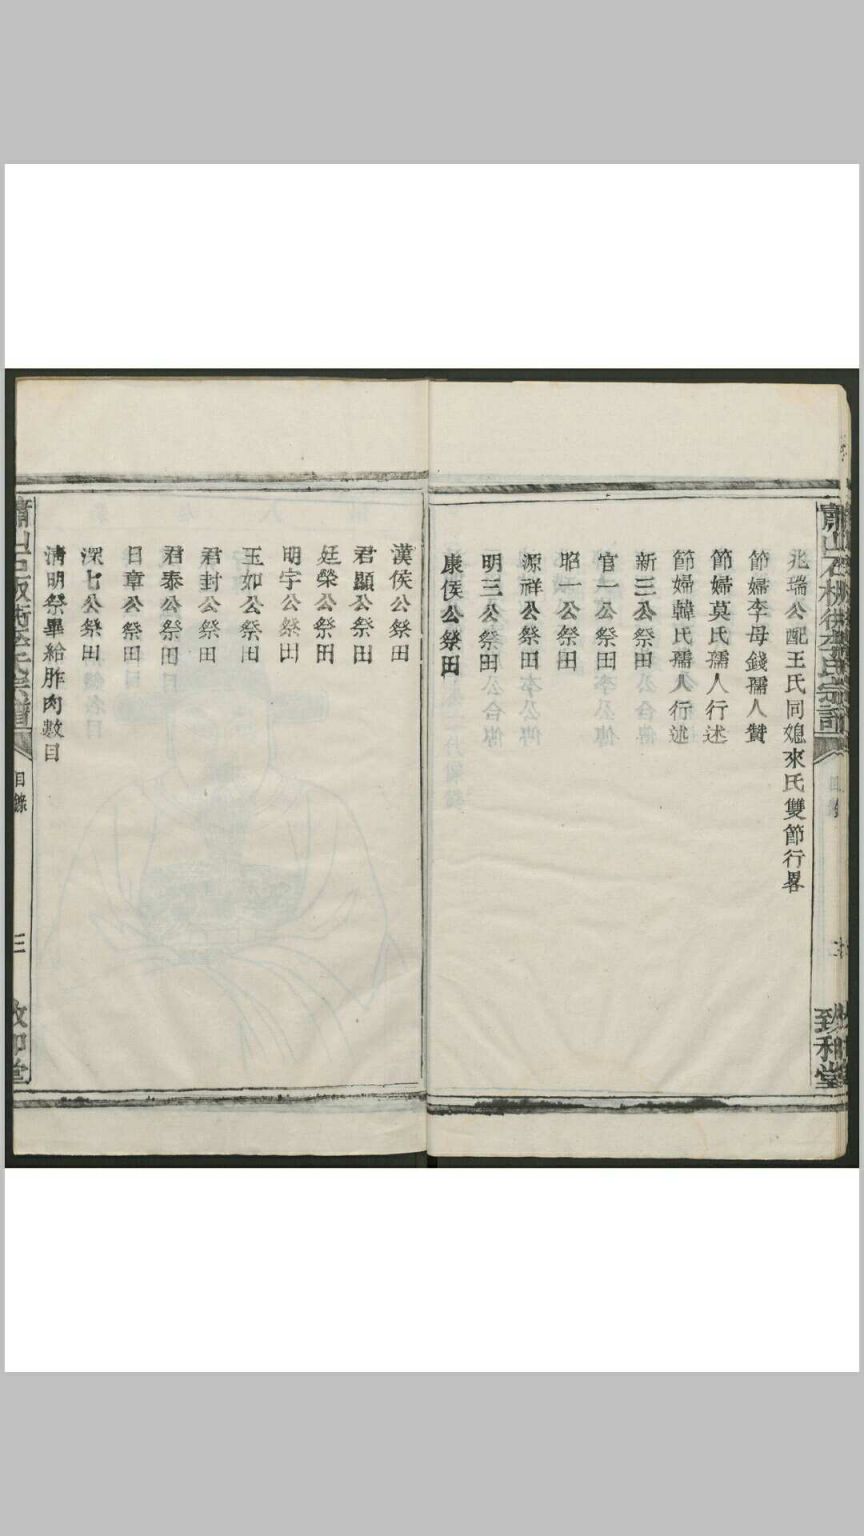 兆瑞公配王氏同媳來氏雙節行畧
節婦李母錢孺人贊
節婦莫氏孺人行述
節婦韓氏孺人行述
新三公祭田
官一公祭田
昭一公祭田
源祥公祭田
明三公祭田
康侯公祭田
漢侯公祭田
君顯公祭田
廷榮公祭田
明宇公祭田
玉如公祭田
君封公祭田
君泰公祭田
日章公祭田
深七公祭田
清明祭畢給胙肉數目
目錄
三
致和堂